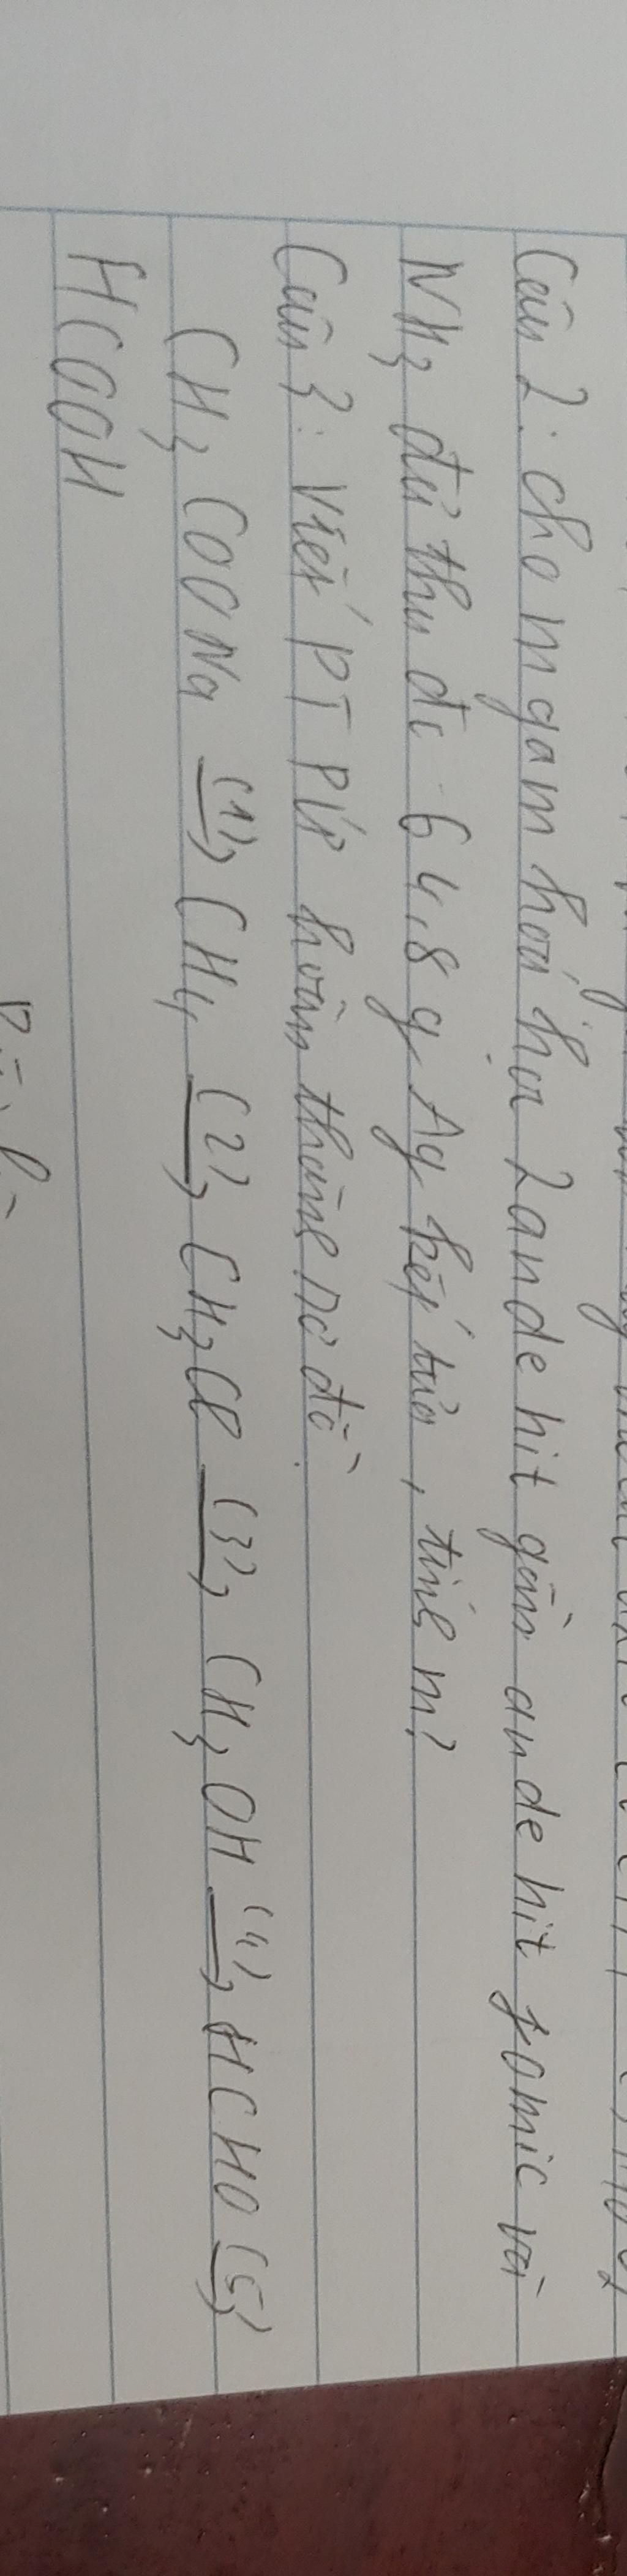 Câu 2: cho m gam hoá hơi 2 anđehit gồm anđehit fomic và
NH3 đủ thu đc 64,8 g Ag kết tủa, tính m?
Câu 3: Viết PT PƯ hoàn thành sơ đồ.
CH3COONa (1)→ CH4 (2)→ CH3Cl (3)→ CH3OH (4)→ HCHO (5)→
HCOOH